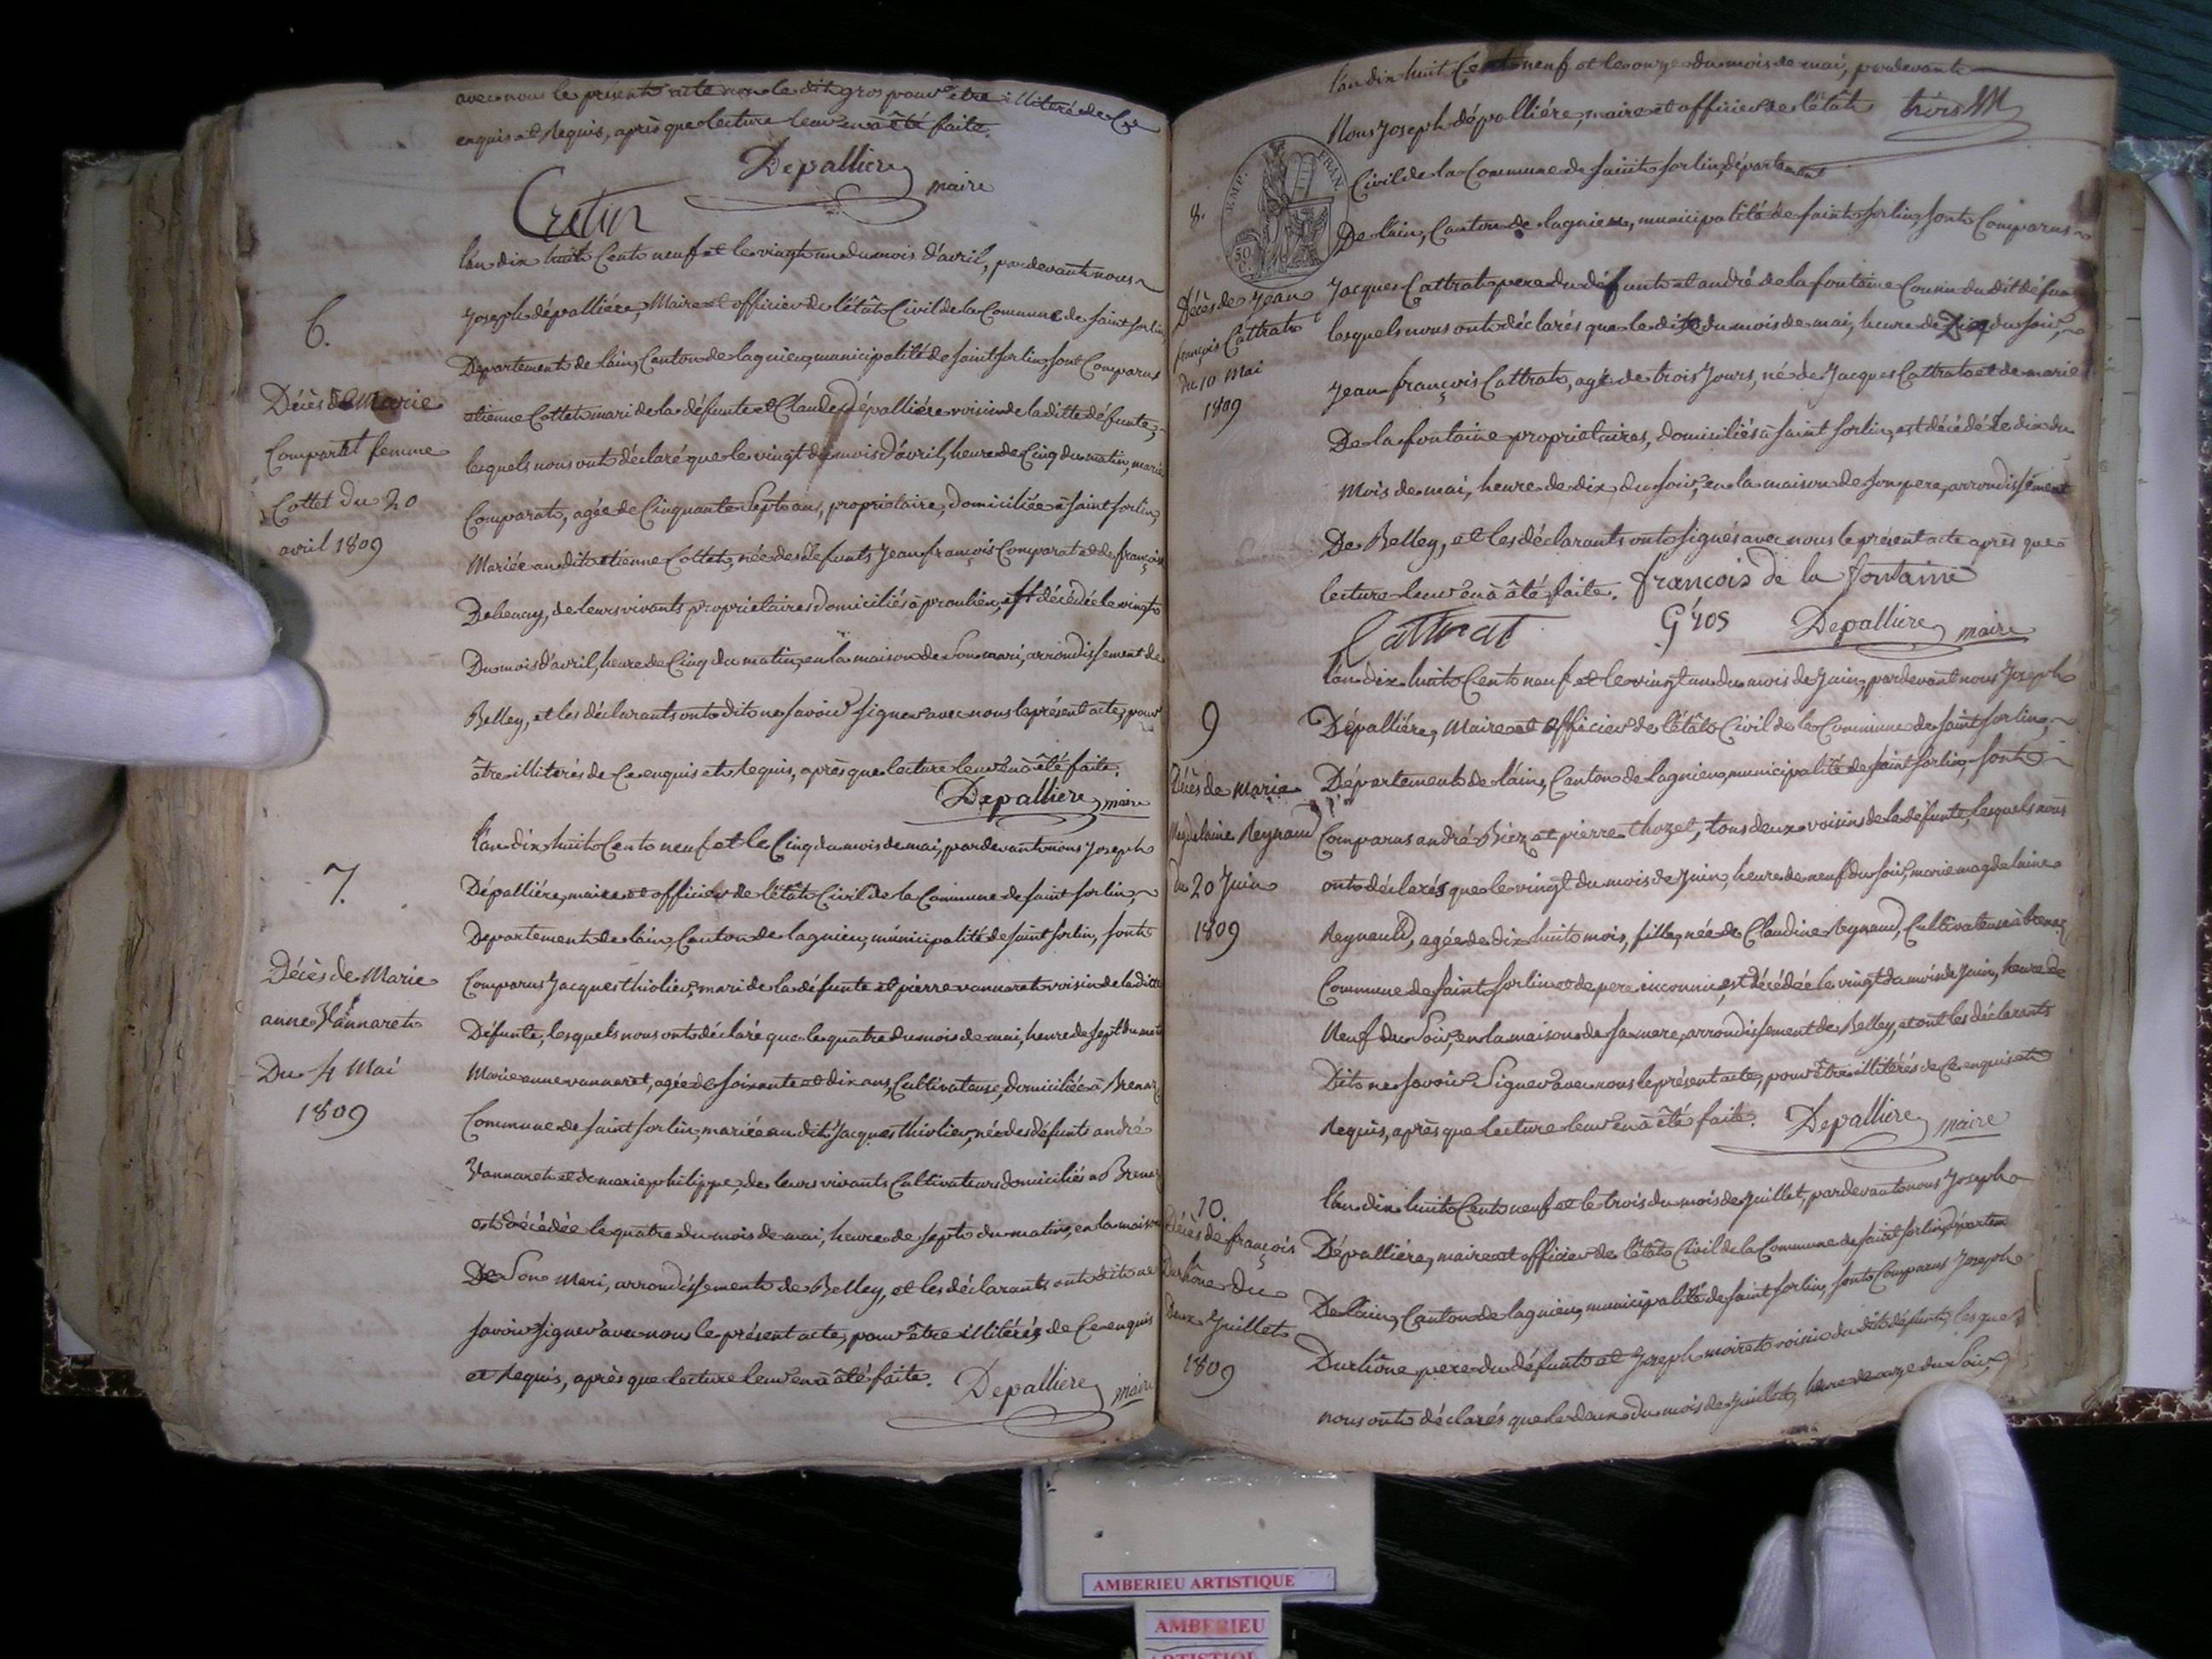 avec nous le présent acte non le dit gros pour être illiteré de Ce
enquis et Requis, après que lecture leur en à été faite.
Depalliere maire
Cretin
6.
Décès de Marie
Comparat femme
Cottet du 20
avril 1809
l'an dix huit Cent neuf et le vingt un du mois d'avril, pardevant nous
Joseph dépalliére, Maire et officier de l'état Civil de la Commune de saint sorlin,
Departement de l'ain, Canton de lagnieu, municipalité de saint sorlin, sont Comparus
etienne Cottet mari de la défunte et Claude dépalliére voisin de la ditte défunte,
lesquels nous ont déclaré que le vingt du mois d'avril, heure de Cinq du matin, marie
Comparat, agée de Cinquante Sept ans, propriétaire, domiciliée à saint sorlin,
Mariée au dit etienne Cottet, née de défunts Jean françois Comparat et de françoise
de leurs vivants propriétaires domiciliés à proulieu, est décédée le vingt
Du mois d'avril, heure de Cinq du matin, en la maison de Son mari, arrondissement de
Belley, et les déclarants ont dit ne savoir signer avec nous le présent acte, pour
être illiterés de Ce enquis et Requis, après que lecture leur en à été faite.
Depalliere maire
7.
Décès de Marie
anne Vannaret
Du 4 Mai
1809
l'an dix huit Cent neuf et le Cinq du mois de mai, pardevant nous Joseph
Dépalliére, maire et officier de l'état Civil de la Commune de saint sorlin,
Departement de l'ain, Canton de lagnieu, municipalité de saint sorlin, sont
Comparus Jacques thiolier, mari de la défunte et pierre vannaret voisin de la ditte
Défunte, lesquels nous ont déclaré que le quatre du mois de mai, heure de sept du matin
Marie anne vannaret, agée de soixante et dix ans, Cultivateuse, domiciliée à Brenaz
Commune de saint sorlin, mariée au dit Jacques thiolier, née des défunts andré
Vannaret et de marie philippe, de leurs vivants Cultivateurs domiciliés à Brenaz
est décédée le quatre du mois de mai, heure de sept du matin, en la maison
De Son Mari, arrondissement de Belley, et les déclarants ont dit ne
savoir signer avec nous le présent acte, pour être illitérés de Ce enquis
et Requis, après que lecture leur en à été faite.
Depalliere maire
8.
EMP. FRAN.
50 C.
Décès de Jean
françois Cattrat
du 10 Mai
1809
l'an dix huit Cent neuf et le onze du mois de mai, pardevant
Nous Joseph dépalliére, maire et officier de l'état trois
Civil de la Commune de saint sorlin, département
De l'ain, Canton de lagnieu, municipalité de saint sorlin, sont Comparus
Jacques Cattrat pere du défunt et andré de la fontaine Cousin du dit défunt
lesquels nous ont déclarés que le dix du mois de mai, heure de Dix du soir,
Jean françois Cattrat, agé de trois Jours, né de Jacques Cattrat et de marie
De la fontaine propriétaires, domiciliés à saint sorlin, est décédé le dix du
Mois de mai, heure de dix du soir, en la maison de son pere, arrondissement
De Belley, et les déclarants ont signés avec nous le présent acte après que
lecture leur en à été faite. francois de la fontaine
Cattrat Gros Depalliere maire
9
Décès de Marie
Magdelaine Reynaud
du 20 Juin
1809
l'an dix huit Cent neuf et le vingt un du mois de Juin, pardevant nous Joseph
Dépalliére, Maire et officier de l'état Civil de la Commune de saint sorlin,
Département de l'ain, Canton de Lagnieu, municipalité de saint sorlin, sont
Comparus andré Biez et pierre thozet, tous deux voisins de la défunte, lesquels nous
ont déclarés que le vingt du mois de Juin, heure de neuf du soir, marie magdelaine
Reynaud, agée de dix huit mois, fille, née de Claudine Reynaud, Cultivateuse à brenaz
Commune de saint sorlin et de pere inconnu, est décédée le vingt du mois de Juin, heure de
Neuf du Soir, en la maison de sa mere, arrondissement de Belley, et ont les déclarants
Dit ne savoir Signer avec nous le présent acte, pour être illitérés de Ce enquis et
Requis, après que lecture leur en à été faite. Depalliere maire
10.
Décès de françois
Durhône du
Deux Juillet
1809
l'an dix huit Cent neuf et le trois du mois de Juillet, pardevant nous Joseph
Dépalliére, maire et officier de l'état Civil de la Commune de saint sorlin, départem
De l'ain, Canton de lagnieu, municipalité de saint sorlin, sont Comparus Joseph
Durhône pere du défunt et Joseph moiret voisin du dit défunt, lesquels
nous ont déclarés que le deux du mois de Juillet, heure de onze du Soir,
AMBERIEU ARTISTIQUE
AMBERIEU
ARTISTIQUE